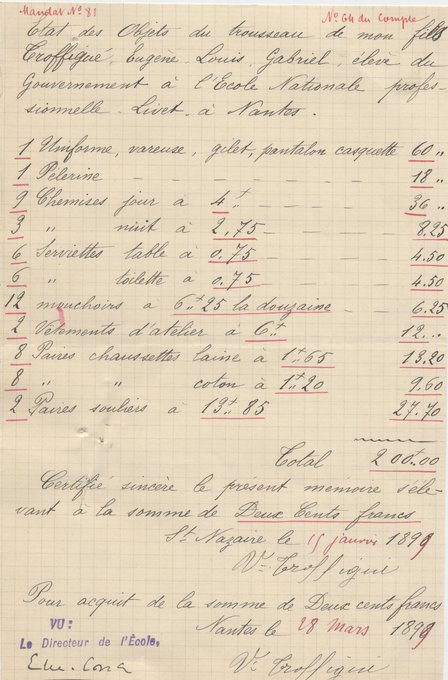 Mandat N° 81
N° 64 du Compte
Etat des Objets du trousseau de mon fils
Troffigué, Eugène, Louis, Gabriel, élève du
Gouvernement à l'Ecole Nationale profes-
sionnelle Livet à Nantes.
1 Uniforme, vareuse, gilet, pantalon casquette 60 „
1 Pélerine — — — — — — — 18 „
9 Chemises jour à 4f — — — — 36 „
3 „ nuit à 2,75 — — — — 8.25
6 Serviettes table à 0.75 — — — — 4.50
6 „ toilette à 0.75 — — — — 4.50
12 mouchoirs à 6f25 la douzaine — 6.25
2 Vêtements d'atelier à 6f 12...
8 Paires chaussettes laine à 1f65 13.20
8 „ „ coton à 1f20 9.60
2 Paires souliers à 13f.85 27.70
Total 200f.00
Certifié sincère le présent mémoire s'éle-
vant à la somme de Deux Cents francs
St Nazaire le 15 janvier 1899
Ve Troffigué
Pour acquit de la somme de Deux cents francs
Nantes le 28 Mars 1899
VU:
Le Directeur de l'École,
Ve Troffigué